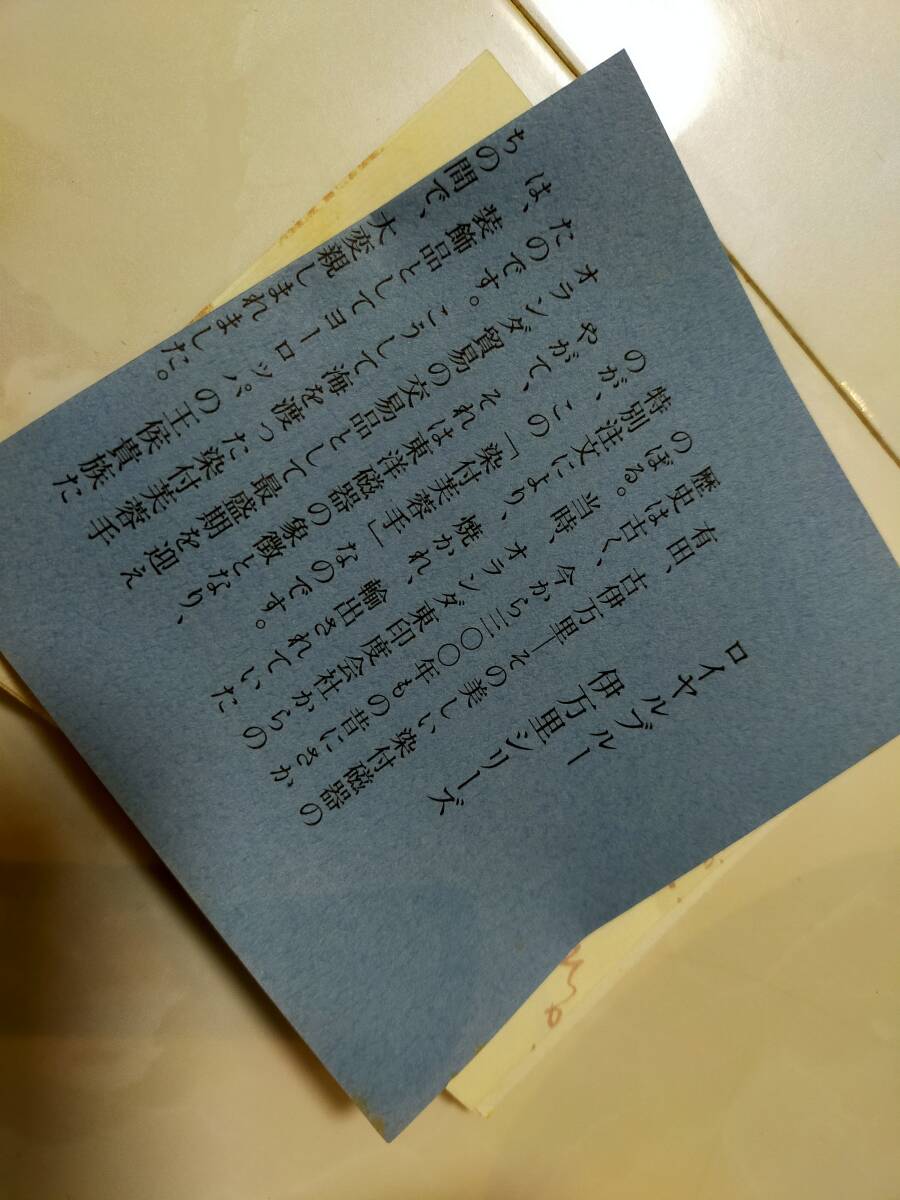 ロイヤルブルー
伊万里シリーズ
有田、古伊万里―その美しい染付磁器の
歴史は古く、今から三〇〇年もの昔にさか
のぼる。当時、オランダ東印度会社からの
特別注文により、焼かれ、輸出されていた
のが、この「染付芙蓉手」なのです。
やがて、それは東洋磁器の象徴となり、
オランダ貿易の交易品として最盛期を迎え
たのです。こうして海を渡った染付芙蓉手
は、装飾品としてヨーロッパの王侯貴族た
ちの間で、大変親しまれました。